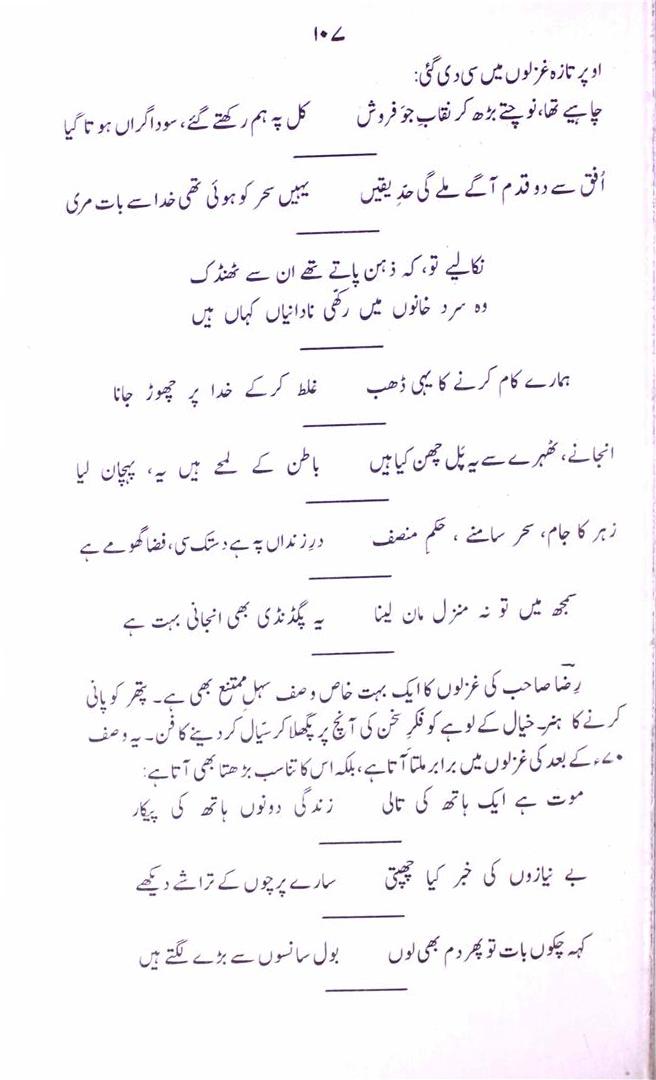 ۱۰۷
اوپر تازہ غزلوں میں سی دی گئی:
چاہیے تھا، نوچتے بڑھ کر نقابِ جَو فروش کل پہ ہم رکھتے گئے، سودا گراں ہوتا گیا
اُفق سے دو قدم آگے ملے گی حدِّ یقیں یہیں سحر کو ہوئی تھی خدا سے بات مری
نکالیے تو، کہ ذہن پاتے تھے ان سے ٹھنڈک
وہ سرد خانوں میں رکھّی نادانیاں کہاں ہیں
ہمارے کام کرنے کا یہی ڈھب غلط کرکے خدا پر چھوڑ جانا
انجانے، ٹھہرے سے یہ پَل چھن کیا ہیں باطن کے لمحے ہیں یہ، پہچان لیا
زہر کا جام، سحر سامنے، حکمِ منصف درِ زنداں پہ ہے دستک سی، فضا گھومے ہے
سمجھ میں تو نہ منزل مان لینا یہ پگڈنڈی بھی انجانی بہت ہے
رضا صاحب کی غزلوں کا ایک بہت خاص وصف سہلِ ممتنع بھی ہے۔ پتھر کو پانی
کرنے کا ہنر۔ خیال کے لوہے کو فکرِ سخن کی آنچ پر پگھلا کر سیّال کر دینے کا فن۔ یہ وصف
۷۰ء کے بعد کی غزلوں میں برابر ملتا آتا ہے، بلکہ اس کا تناسب بڑھتا بھی آتا ہے:
موت ہے ایک ہاتھ کی تالی زندگی دونوں ہاتھ کی پیکار
بے نیازوں کی خبر کیا چھپتی سارے پرچوں کے تراشے دیکھے
کہہ چکوں بات تو پھر دم بھی لوں بول سانسوں سے بڑے لگتے ہیں